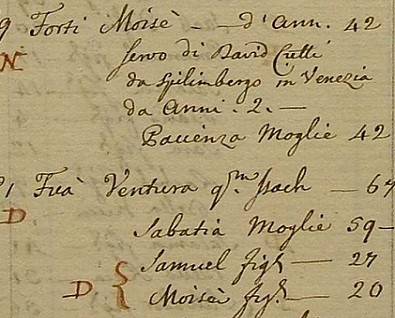 9 Forti Moisè — d'Ann. 42
N servo di David Cutti
da Spilimbergo in Venezia
da Anni. 2. —
Pacienza Moglie 42
1 Fuà Ventura qm. Isach — 67
D
Sabatià Moglie 59 —
Samuel figl. — 27
D { Moisè figl. — 20